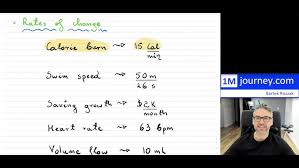 Rates of change
Calorie burn ~> 15 Cal
min
Swim speed ~> 50 m
26 s
Saving growth ~> $2K
month
Heart rate ~> 63 bpm
Volume flow ~> 10 ml
1M
journey.com